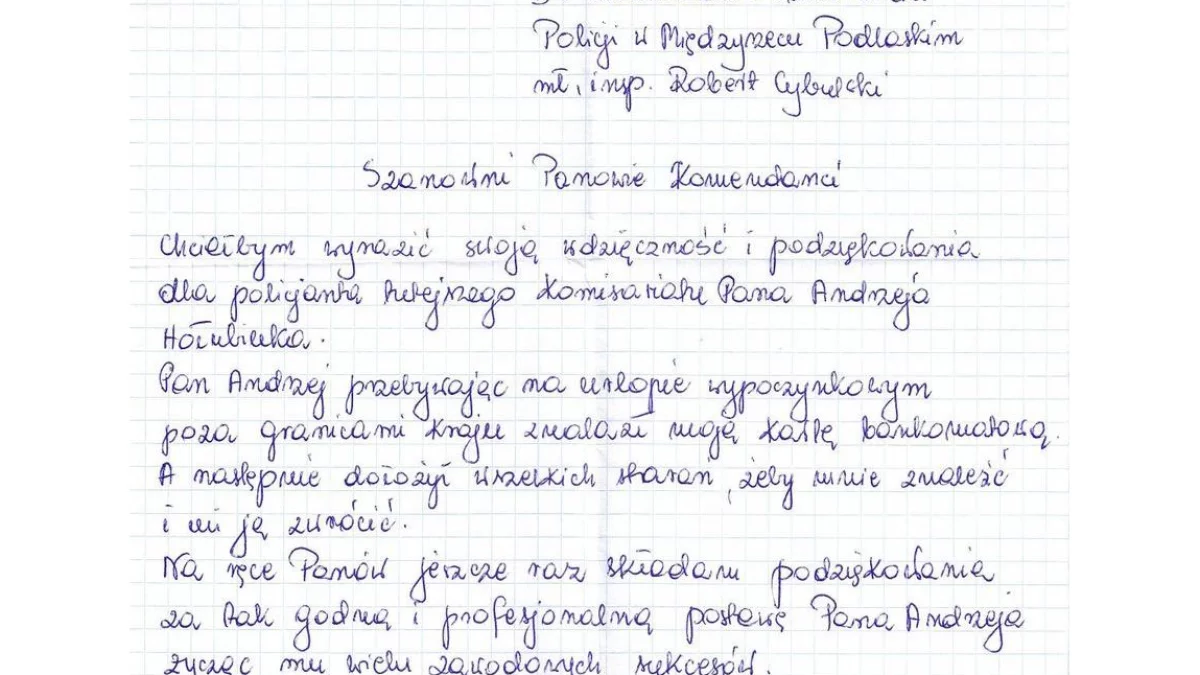 Policji w Międzyrzecu Podlaskim
mł. insp. Robert Cybulski
Szanowni Panowie Komendanci
Chciałbym wyrazić swoją wdzięczność i podziękowania
dla policjanta tutejszego Komisariatu Pana Andrzeja
Hołubiuka.
Pan Andrzej przebywając na urlopie wypoczynkowym
poza granicami kraju znalazł moją kartę bankomatową.
A następnie dołożył wszelkich starań, żeby mnie znaleźć
i mi ją zwrócić.
Na ręce Panów jeszcze raz składam podziękowania
za tak godną i profesjonalną postawę Pana Andrzeja
życząc mu wielu zawodowych sukcesów.